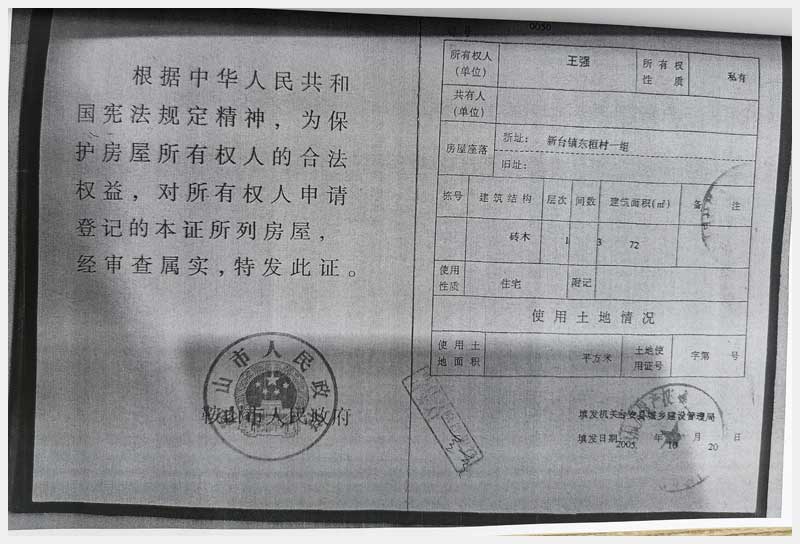 根据中华人民共和
国宪法规定精神，为保
护房屋所有权人的合法
权益，对所有权人申请
登记的本证所列房屋，
经审查属实，特发此证。
鞍山市人民政府
0050
所有权人（单位） 王强 所有权性质 私有
共有人（单位）
房屋座落 新址： 新台镇东桓村一组
旧址：
栋号 建筑结构 层次 间数 建筑面积(㎡) 备注
砖木 1 3 72
使用性质 住宅 附记
使用土地情况
使用土地面积 平方米 土地使用证号 字第 号
填发机关台安县城乡建设管理局
填发日期 2005. 年 10 月 20 日